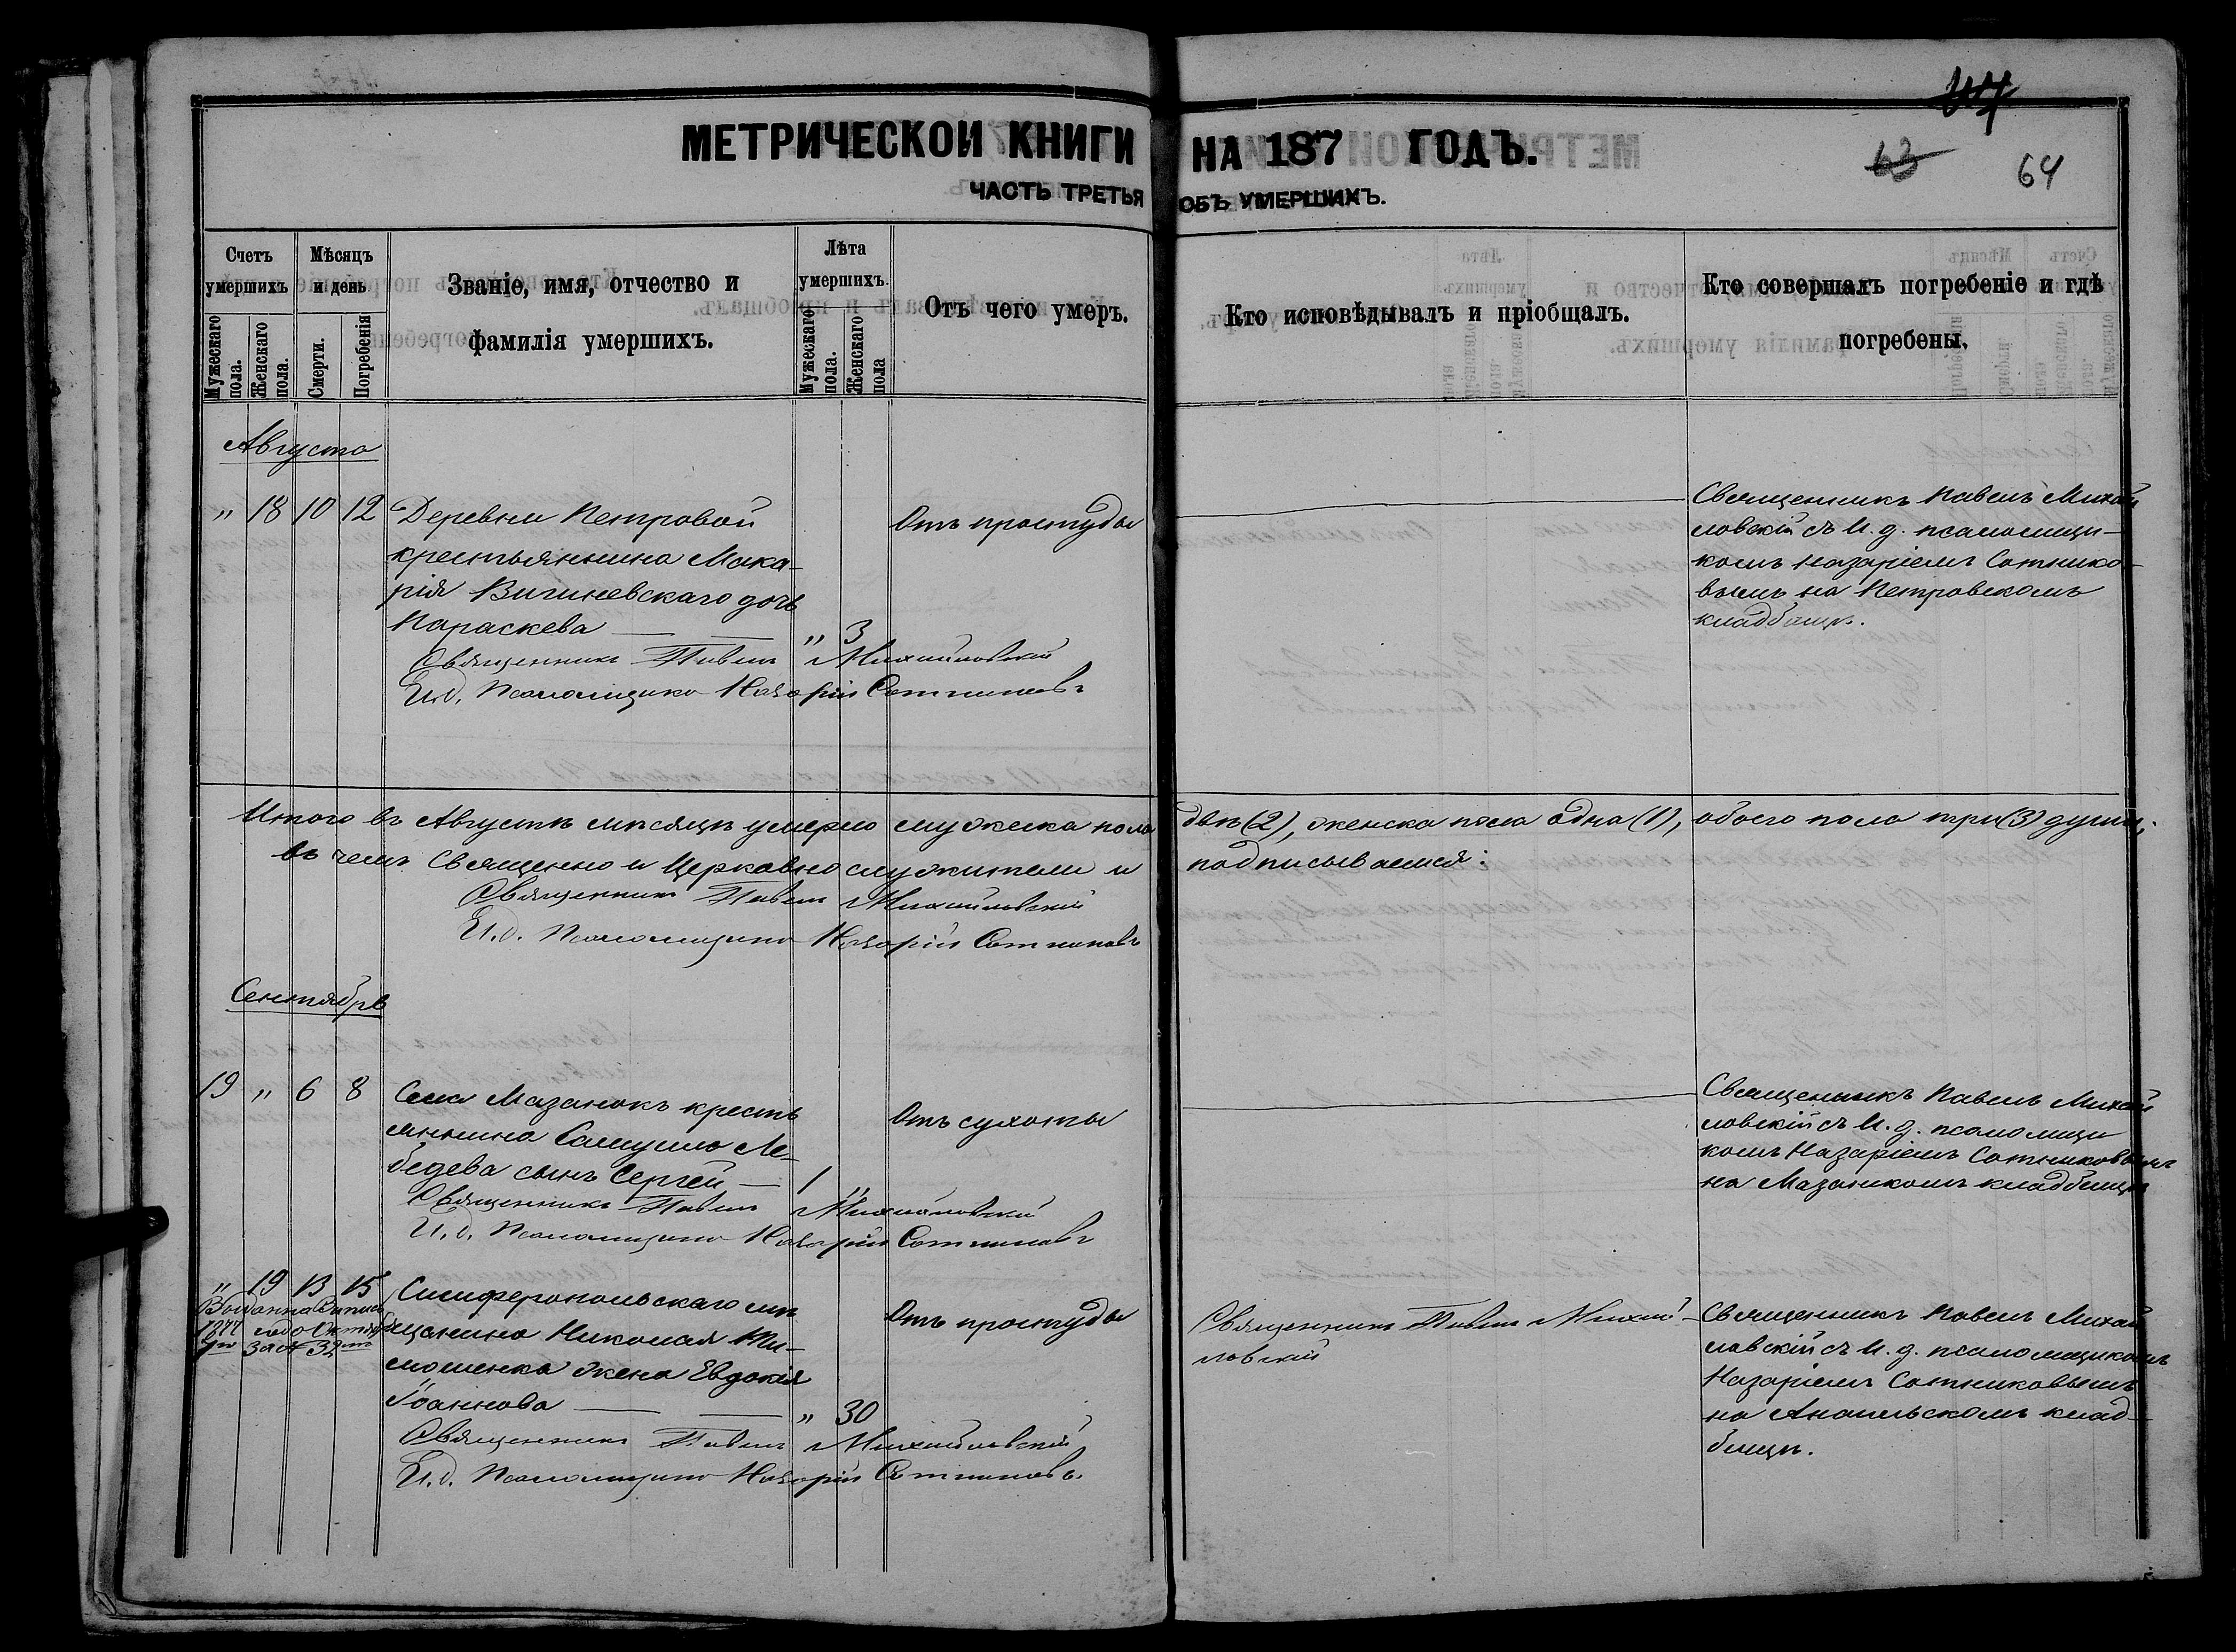 44
МЕТРИЧЕСКОЙ КНИГИ НА 187 ГОДЪ.
63 64
ЧАСТЬ ТРЕТЬЯ ОБЪ УМЕРШИХЪ.
Счетъ умершихъ
Мужескаго пола.
Женскаго пола.
Мѣсяцъ и день
Смерти.
Погребенія
Званіе, имя, отчество и
фамилія умершихъ.
Лѣта умершихъ.
Мужескаго пола.
Женскаго пола
Отъ чего умеръ.
Кто исповѣдывалъ и пріобщалъ.
Кто совершалъ погребеніе и гдѣ
погребены.
Августа
" 18 10 12 Деревни Петровой
крестьянина Мака-
рія Вишневскаго дочь
Параскева — — " 3
Отъ простуды
Священникъ Павелъ Михай
ловскій съ И. д. псаломщи-
комъ Назаріемъ Сотнико-
вымъ на Петровскомъ
кладбищѣ.
Священникъ Павелъ Михайловскій
И.д. Псаломщика Назарій Сотниковъ
Итого въ Августѣ мѣсяцѣ умерло мужеска пола двѣ (2), женска пола одна (1), обоего пола три (3) души,
въ чемъ Священно и Церковно служители и подписываемся:
Священникъ Павелъ Михайловскій
И.д. Псаломщика Назарій Сотниковъ
Сентябрь
19 " 6 8 Села Мазанокъ кресть
янина Самуила Ле-
бедева сынъ Сергей — 1 "
Отъ сухоты
Священникъ Павелъ Михай
ловскій съ И. д. псаломщи
комъ Назаріемъ Сотниковымъ
на Мазанкомъ кладбищѣ
Священникъ Павелъ Михайловскій
И.д. Псаломщика Назарій Сотниковъ
" 19 13 15 Симферопольскаго мѣ
щанина Николая Ти-
мошенка жена Евдокія
Іоаннова — — " 30
Выдана Выпись
1877 года Октября
за № 32
Отъ простуды
Священникъ Павелъ Михай-
ловскій
Священникъ Павелъ Михай
ловскій съ И. д. псаломщикомъ
Назаріемъ Сотниковымъ
на клад
бищѣ.
Священникъ Павелъ Михайловскій
И.д. Псаломщика Назарій Сотниковъ